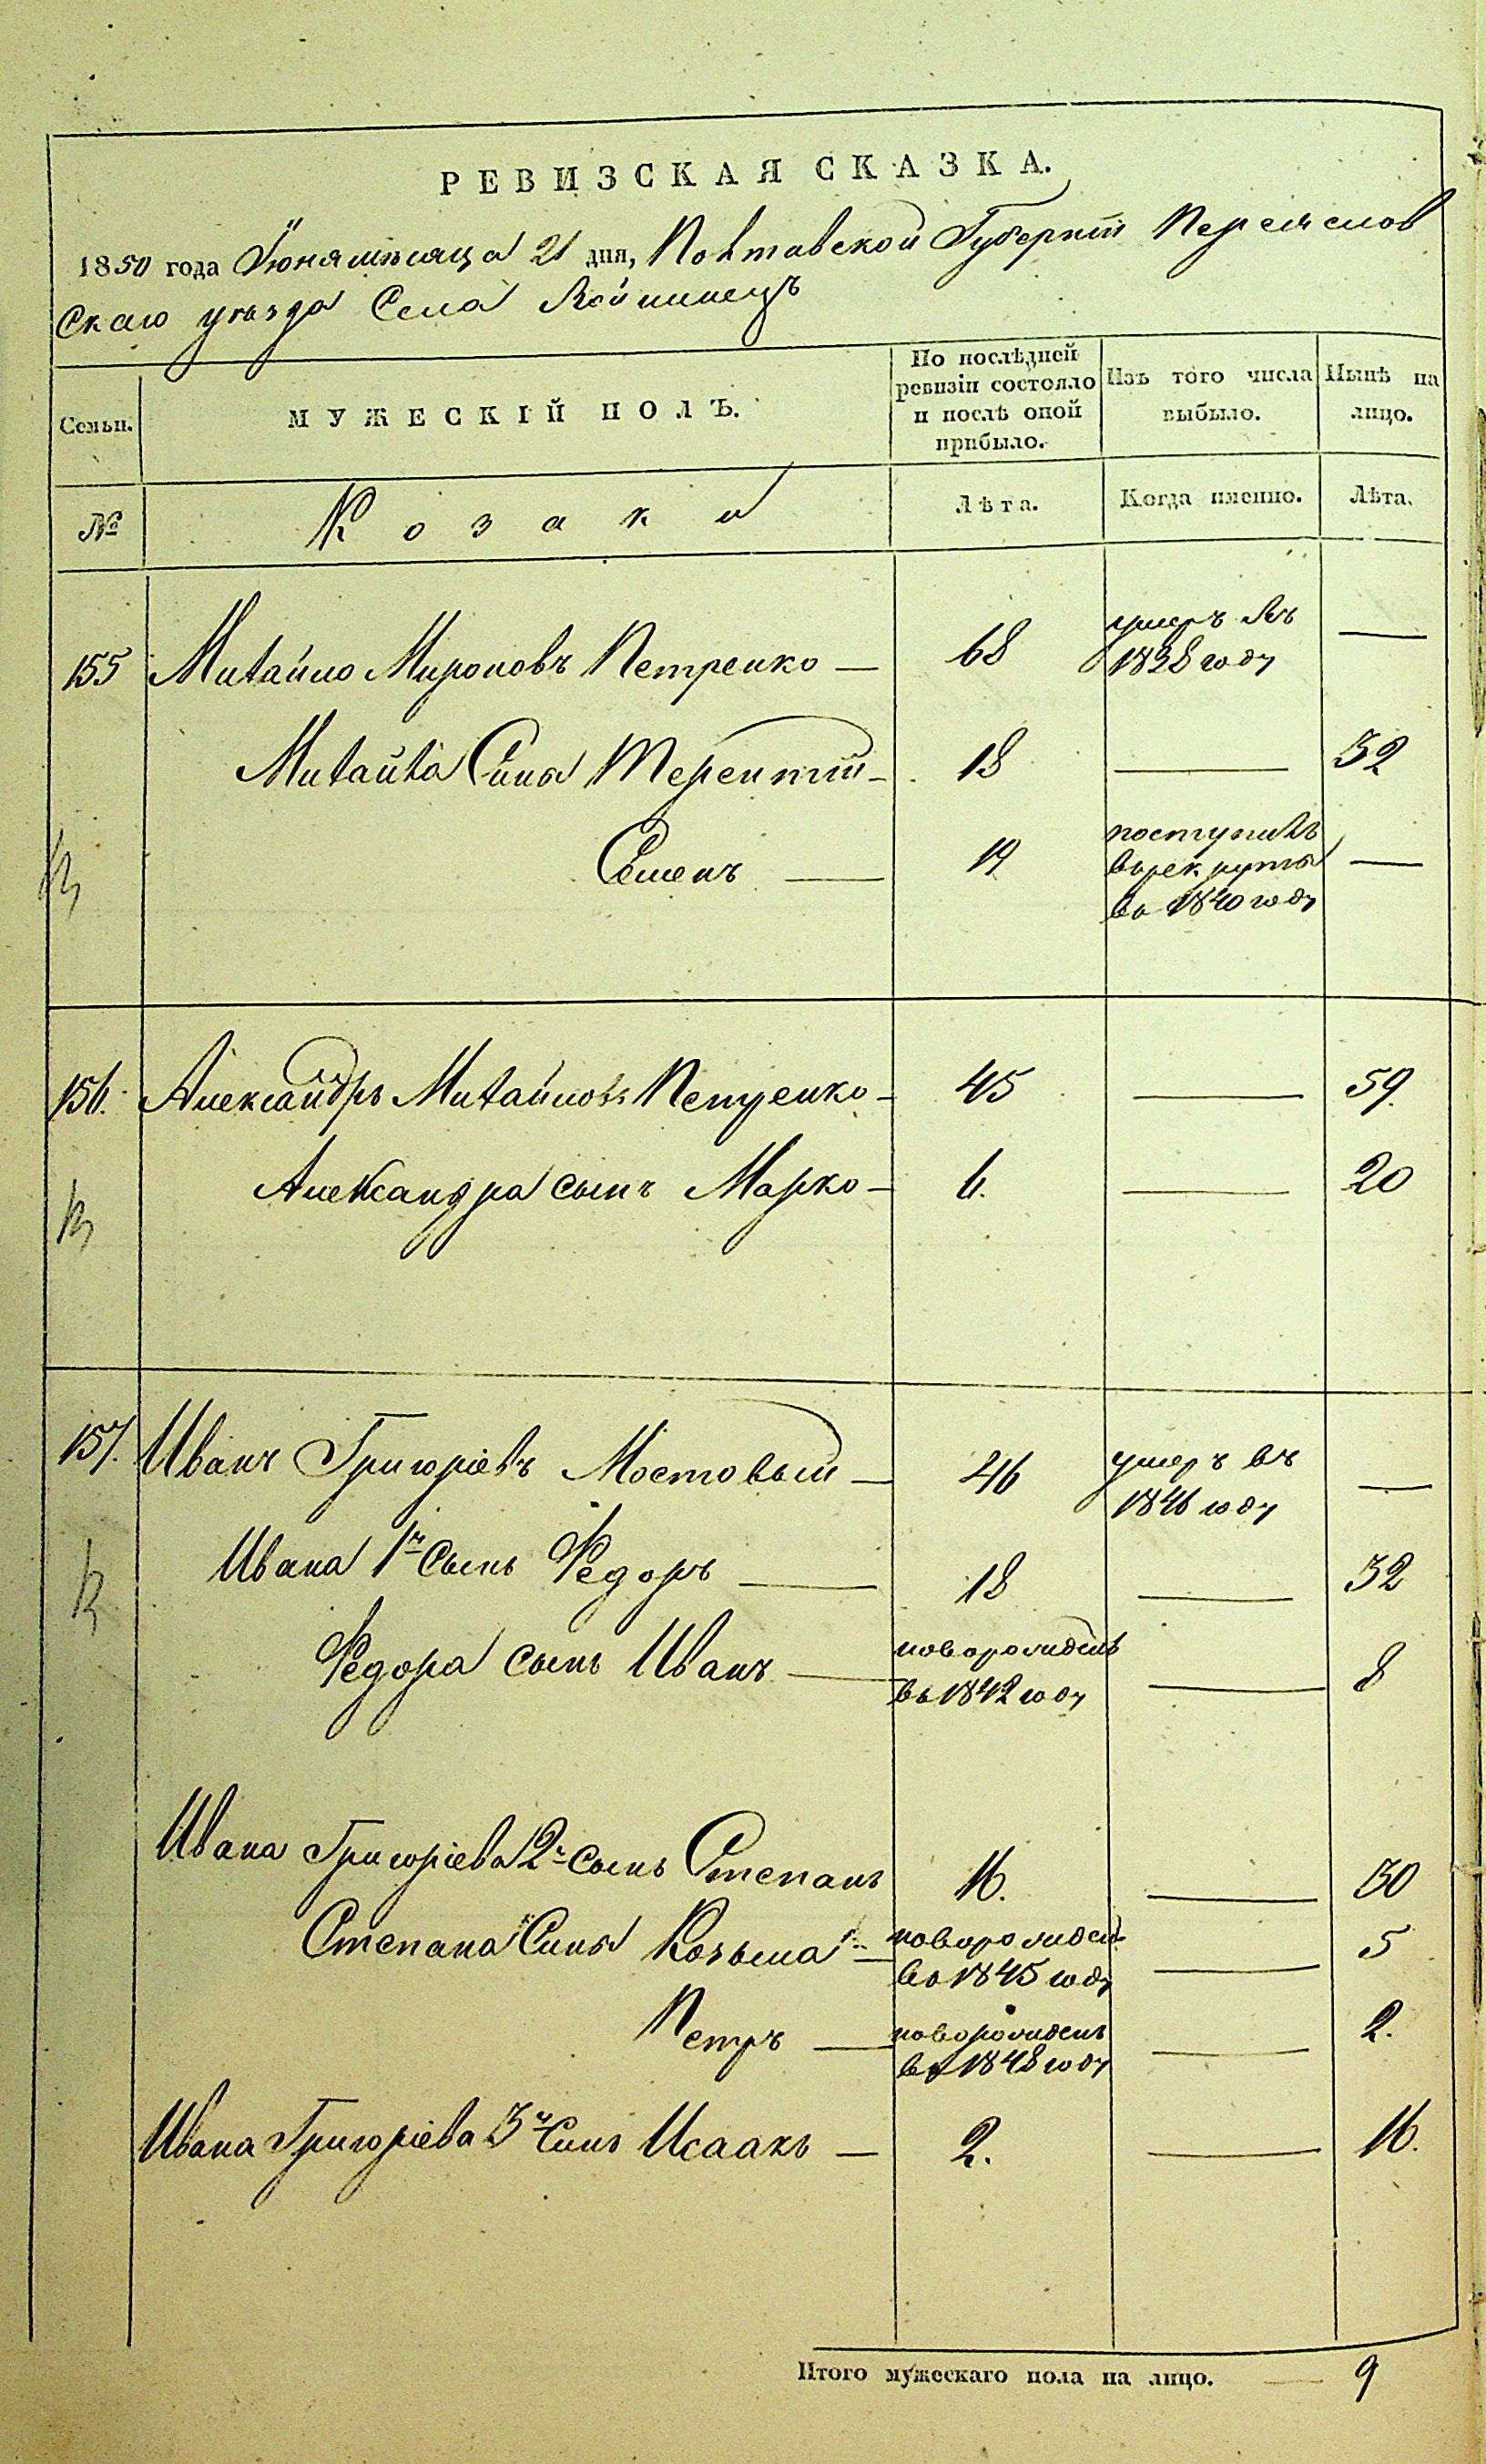 РЕВИЗСКАЯ СКАЗКА.
1850 года Іюня мѣсяца 21 дня, Полтавской Губерніи Переяслов
скаго уѣзда Села Войтинецъ
Семьи. МУЖЕСКІЙ ПОЛЪ. По послѣдней ревизіи состояло и послѣ оной прибыло. Изъ того числа выбыло. Нынѣ на лицо.
№ Козаки Лѣта. Когда именно. Лѣта.
155 Михайло Мироновъ Петренко — 68 умеръ въ 1838 году —
Михайла Сины Терентій — 18 — 32
Семенъ — 19 поступилъ въ рекруты въ 1840 году —
156. Александръ Михайловъ Петренко — 45 — 59.
Александра сынъ Марко — 6. — 20
157. Иванъ Григоріевъ Мостовый — 46 умеръ въ 1846 году —
Ивана 1й Сынъ Федоръ — 18 — 32
Федора сынъ Иванъ — новорожденъ въ 1842 году — 8
Ивана Григоріева 2й Сынъ Степанъ 16. — 30
Степана Сины Козьма — новорожден въ 1845 году — 5
Петръ — новорожденъ въ 1848 году — 2.
Ивана Григоріева 3й Синъ Исаакъ — 2. — 16.
Итого мужескаго пола на лицо. — 9